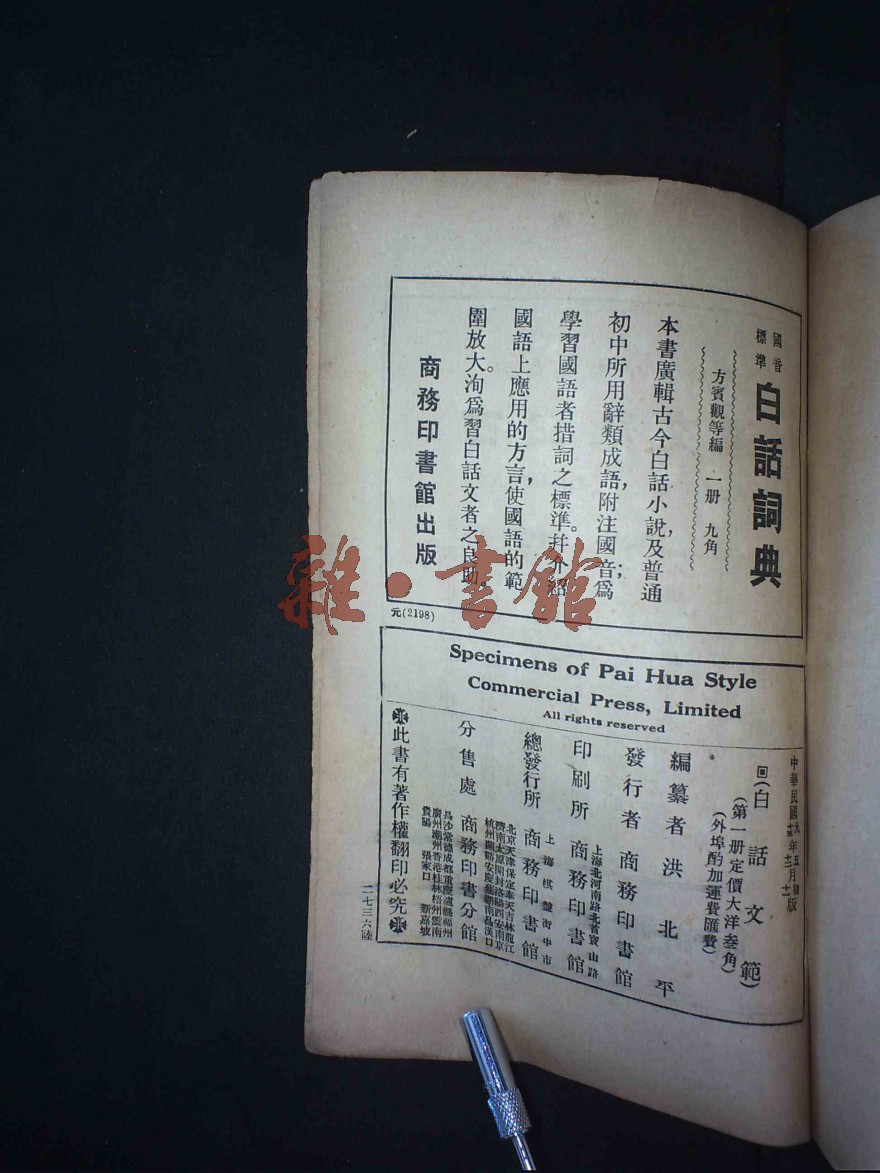 國音
標準
白話詞典
方賓觀等編 一册 九角
本書廣輯古今白話小說,及普通
初中所用辭類成語,附注國音;爲
學習國語者措詞之標準。幷介紹
國語上應用的方言,使國語的範
圍放大。洵爲習白話文者之良助。
商務印書館出版
元(2198)
Specimens of Pai Hua Style
Commercial Press, Limited
All rights reserved
中華民國九年五月初版
回(白話文範)
(第一册定價大洋叁角)
(外埠酌加運費匯費)
編纂者 洪北平
發行者 商務印書館
上海北河南路北首寶山路
印刷所 商務印書館
上海棋盤街中市
總發行所 商務印書館
北京天津保定奉天吉林龍江
濟南太原開封洛陽西安南京
分售處 商務印書分館
長沙常德成都重慶瀘縣福州
廣州潮州香港桂林梧州雲南
貴陽 張家口 新嘉坡
此書有著作權翻印必究
二七三六陸
雜·書館